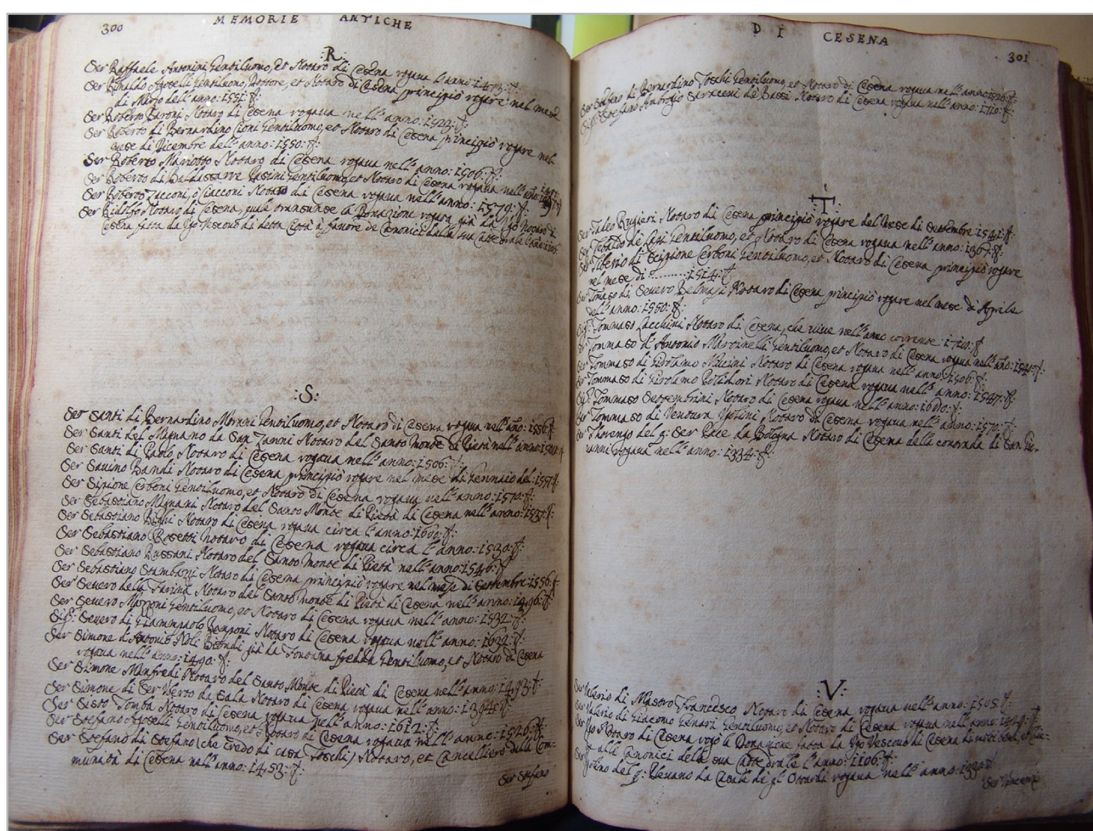 300
MEMORIE ANTICHE
:R:
Ser Raffaele Antonini Gentiluomo, et Notaro di Cesena rogava l'anno: 1473:
Ser Rinaldo Aguselli Gentiluomo, Dottore, et Notaro di Cesena principiò rogare nel mese
dell'anno: 1551:
Ser Roberto Baroni Notaro di Cesena rogava nell'anno: 1522:
Ser Roberto di Bernardino Gentiluomo, et Notaro di Cesena principiò rogare nel
mese di Dicembre dell'anno: 1550:
Ser Roberto Mariotto Notaro di Cesena rogava nell'anno: 1506:
Ser Roberto di Baldassarre Gentiluomo, et Notaro di Cesena rogava nell'año:
Ser Roberto Zacconi, ò Ciacconi Notaro di Cesena rogava nell'anno: 1579:
Ser Ridolfo Notaro di Cesena, quale la Donazione già da Ugo
Cesena fatta da Ugo Vescovo di detta Città à favore de Canonici della sua Cattedrale
:S:
Ser Santi di Bernardino Gentiluomo, et Notaro di Cesena rogava nell'año: 1556:
Ser Santi del Mignano da San Notaro del Santo Monte di Pietà nell'anno:
Ser Santi di Paolo Notaro di Cesena rogava nell'anno: 1506:
Ser Savino Bandi Notaro di Cesena principiò rogare nel mese di Gennaio del: 1557:
Ser Sipione Cerboni Gentiluomo, et Notaro di Cesena rogava nell'anno: 1570:
Ser Sebastiano Mignani Notaro del Santo Monte di Pietà di Cesena nell'anno: 1537:
Ser Sebastiano Notaro di Cesena rogava circa l'anno: 1600:
Ser Sebastiano Rosetti notaro di Cesena rogava circa l'anno: 1530:
Ser Sebastiano Notaro del Santo Monte di Pietà nell'anno: 1546:
Ser Sebastiano Stambazzi Notaro di Cesena principiò rogare nel mese di Settembre: 1556:
Ser Severo della Farina Notaro del Santo Monte di Pietà di Cesena nell'anno: 1496:
Ser Severo Gentiluomo, et Notaro di Cesena rogava nell'anno: 1532:
Sig: Severo di Giammpaolo Notaro di Cesena rogava nell'anno:
Ser Simone d'Antonio già da Fontana fredda Gentiluomo, et Notaro di Cesena
rogava nell'anno: 1490:
Ser Simone Manfredi Notaro del Santo Monte di Pietà di Cesena nell'anno: 1493:
Ser Simone di Ser da Sala Notaro di Cesena rogava nell'anno:
Ser Sisto Tomba Notaro di Cesena rogava nell'anno: 1612:
Ser Stefano Aguselli Gentiluomo, et Notaro di Cesena rogava nell'anno: 1526:
Ser Stefano di Stefano (che credo di casa Toschi) Notaro, et Cancelliero della Com-
munità di Cesena nell'anno: 1453:
Ser Stefano
DI CESENA
301
Ser Stefano di Bernardino Toschi Gentiluomo, et Notaro di Cesena rogava nell'anno:
Stefano Ambrogio Saraceni de Bassi Notaro di Cesena rogava nell'anno: 1710:
:T:
Ser Tadeo Rugieri Notaro di Cesena principiò rogare del Mese di Settembre: 1541:
Gentiluomo, et Notaro di Cesena rogava nell'anno: 1367:
Ser Tiberio di Scipione Cerboni Gentiluomo, et Notaro di Cesena principiò rogare
nel mese di ........ : 1574:
Ser Tomaso di Severo Notaro di Cesena principiò rogare nel mese di Aprile
dell'anno: 1550:
Sig: Tommaso Notaro di Cesena, che vive nell'anno corrente: 1710:
Ser Tommaso d'Antonio Martinelli Gentiluomo, et Notaro di Cesena rogava nell'año:
Ser Tommaso di Girolamo Notaro di Cesena rogava nell'anno: 1506:
Ser Tommaso di Girolamo Notaro di Cesena rogava nell'anno: 1547:
Sig: Tommaso Settembrini Notaro di Cesena rogava nell'anno: 1600:
Ser Tommaso di Ventura Notaro di Cesena rogava nell'anno: 1570:
Ser del q: Ser Pace da Bologna Notaro di Cesena della contrada di San
rogava nell'anno: 1334:
:V:
Ser Valerio di Mastro Francesco Notaro di Cesena rogava nell'anno: 1505:
Ser Valerio di Giacomo Gentiluomo, et Notaro di Cesena rogava nell'anno:
Ser Ugo Notaro di Cesena rogò la Donazione fatta da Ugo Vescovo di Cesena
alli Canonici della sua Cattedrale l'anno: 1106:
del q: da Casale di rogava nell'anno:
Ser Vincenzo